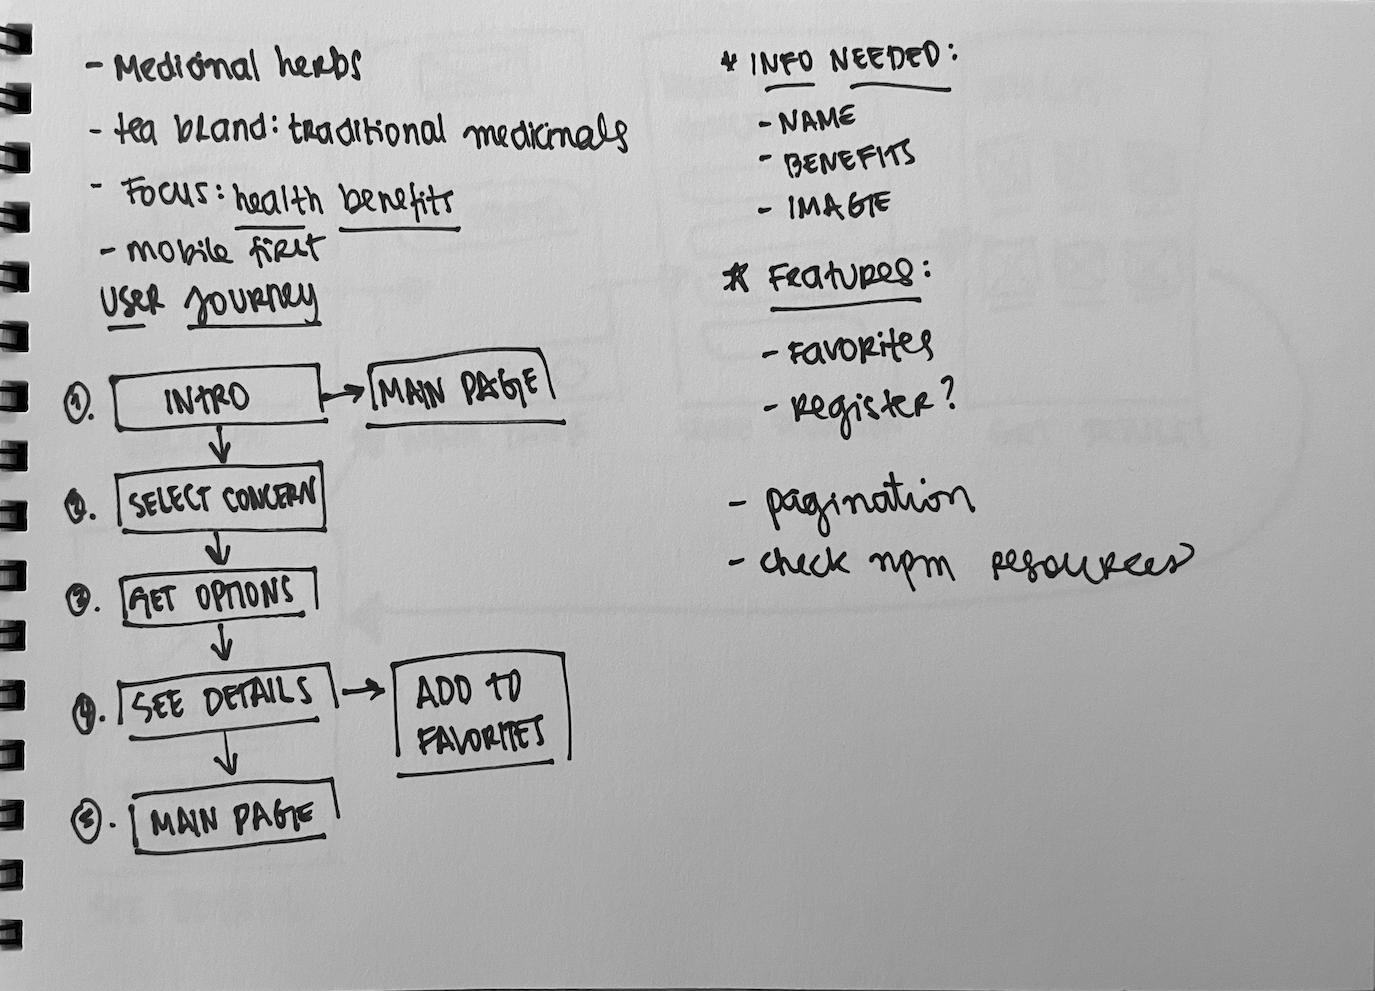 - Medicinal herbs
- tea brand: traditional medicinals
- Focus: health benefits
- mobile first
USER JOURNEY
1. INTRO → MAIN PAGE
2. SELECT CONCERN
3. GET OPTIONS
4. SEE DETAILS → ADD TO
FAVORITES
5. MAIN PAGE
* INFO NEEDED:
- NAME
- BENEFITS
- IMAGE
* Features:
- Favorites
- Register?
- pagination
- check npm resources